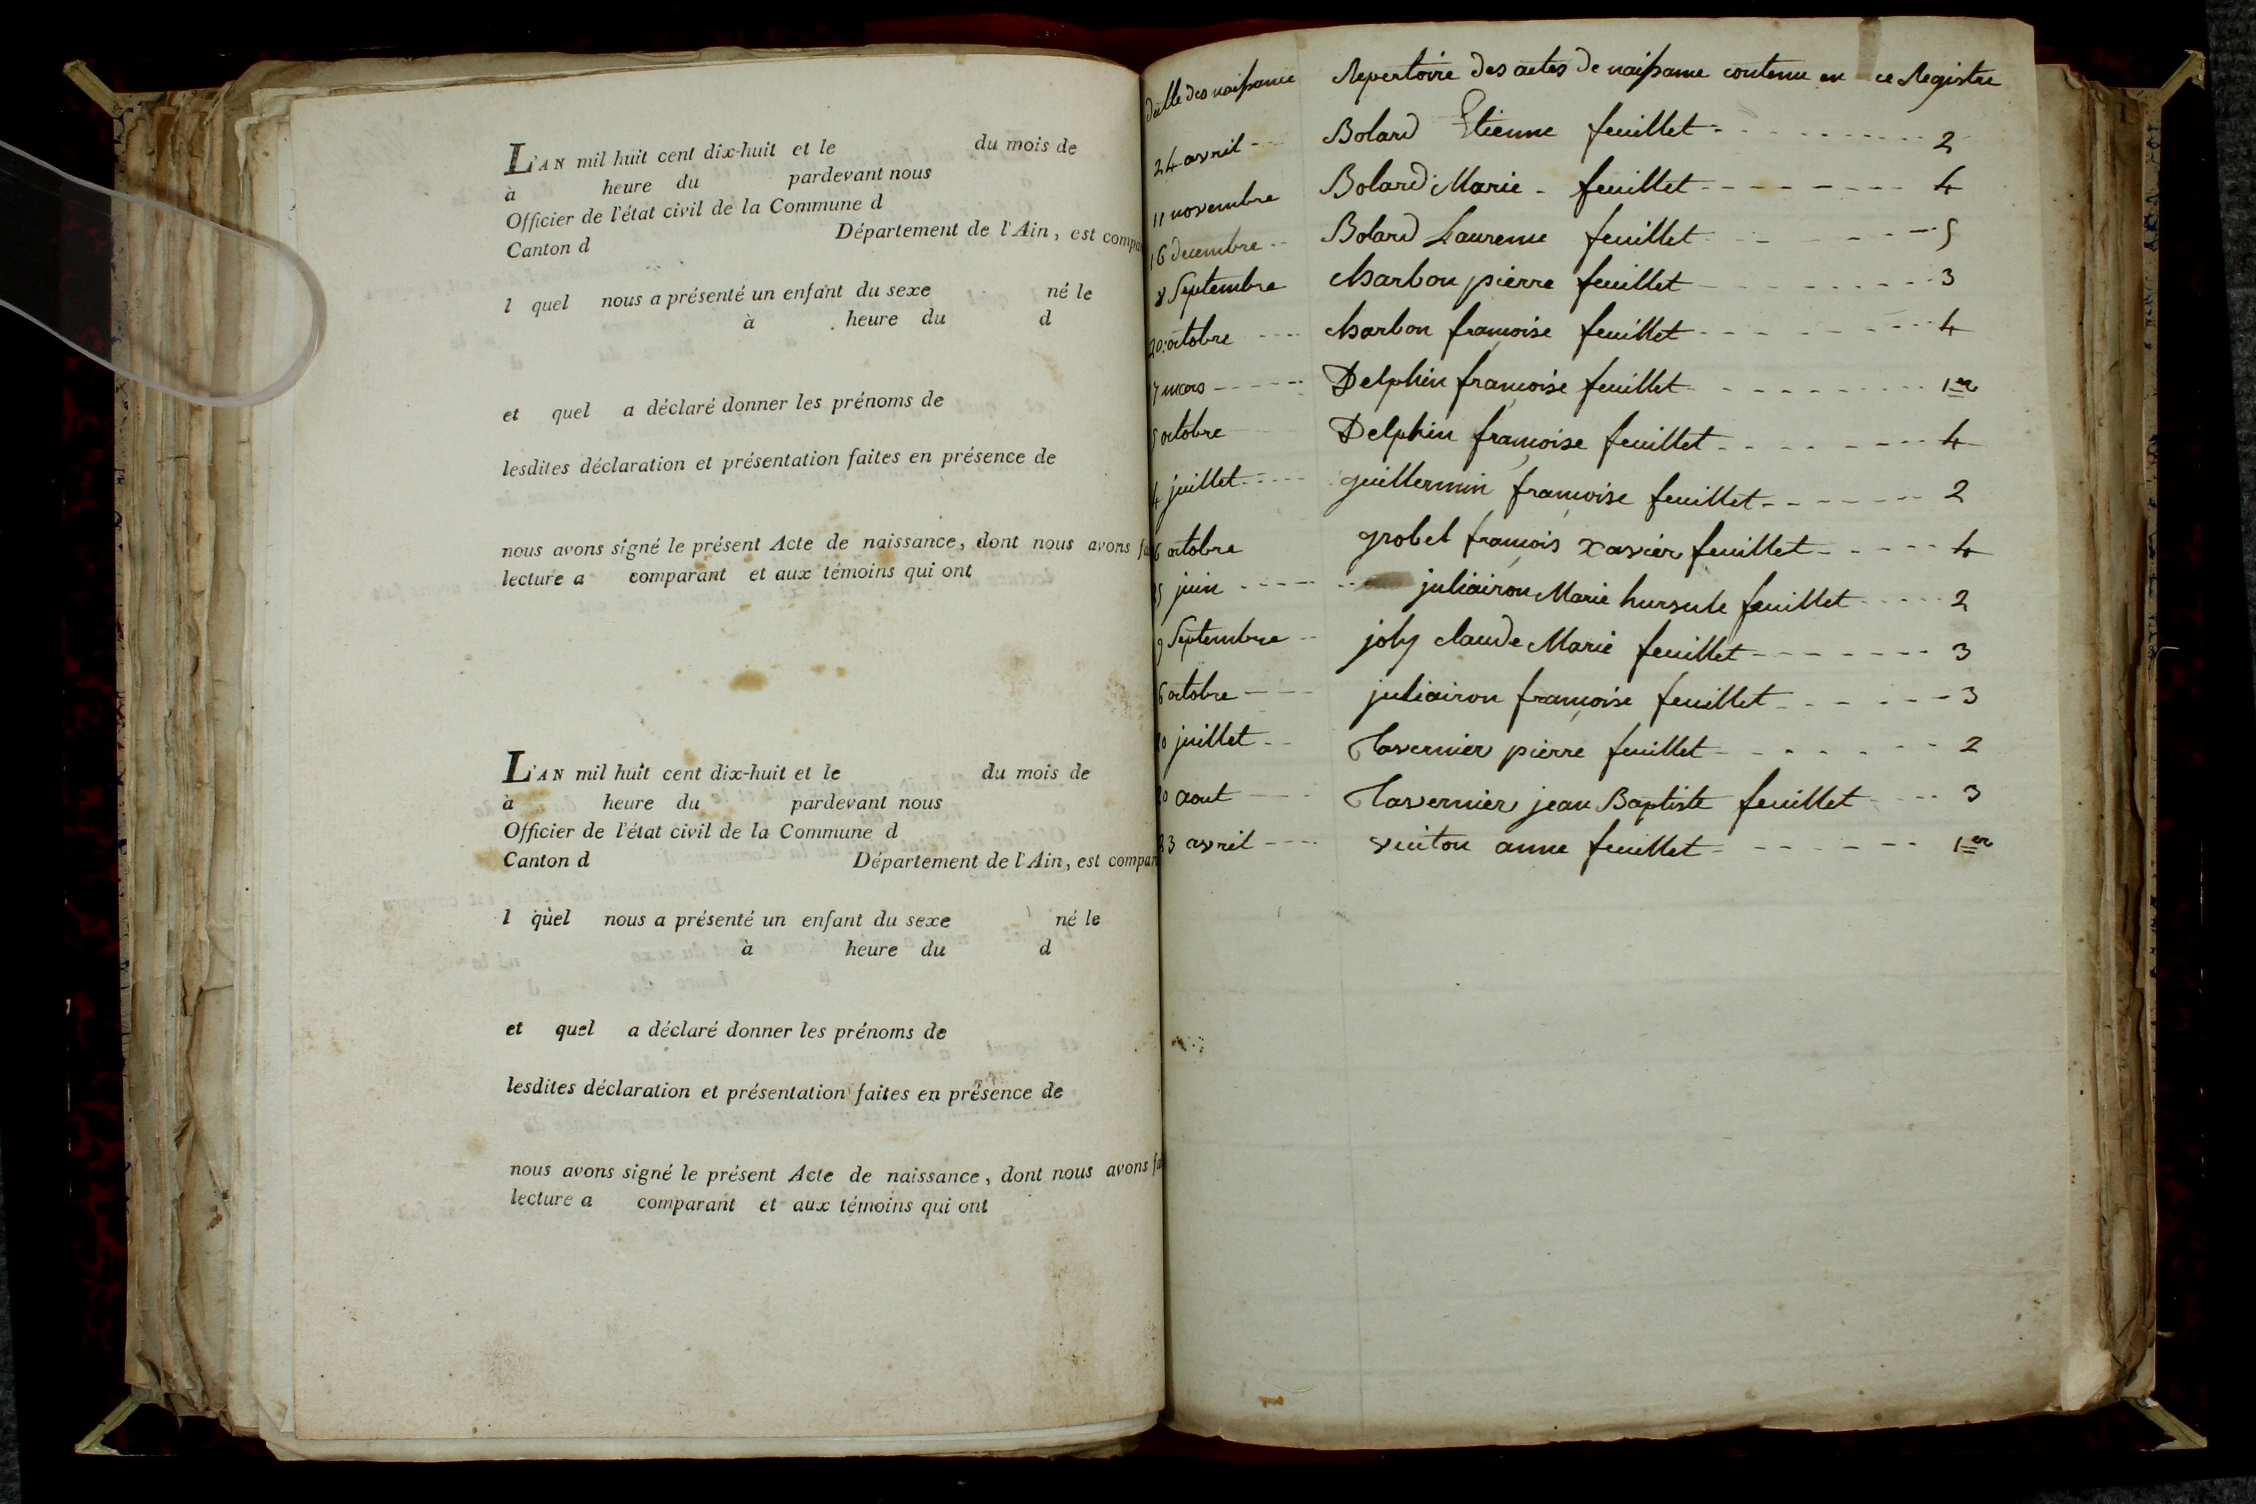 L'AN mil huit cent dix-huit et le du mois de
à heure du pardevant nous
Officier de l'état civil de la Commune d
Canton d Département de l'Ain, est compa
l quel nous a présenté un enfant du sexe né le
à heure du d
et quel a déclaré donner les prénoms de
lesdites déclaration et présentation faites en présence de
nous avons signé le présent Acte de naissance, dont nous avons f
lecture a comparant et aux témoins qui ont
L'AN mil huit cent dix-huit et le du mois de
à heure du pardevant nous
Officier de l'état civil de la Commune d
Canton d Département de l'Ain, est compar
l quel nous a présenté un enfant du sexe né le
à heure du d
et quel a déclaré donner les prénoms de
lesdites déclaration et présentation faites en présence de
nous avons signé le présent Acte de naissance, dont nous avons f
lecture a comparant et aux témoins qui ont
des naissance Repertoire des actes de naissance contenu en ce Registre
24 avril Bolard Etienne feuillet 2
11 novembre Bolard Marie feuillet 4
16 decembre Bolard Laurenne feuillet 5
8 Septembre charbon pierre feuillet 3
20 octobre charbon françoise feuillet 4
7 mars Delphin françoise feuillet 1er
5 octobre Delphin françoise feuillet 4
4 juillet guillermin françoise feuillet 2
6 octobre grobel françois xavier feuillet 4
5 juin juliairon Marie hursule feuillet 2
9 Septembre joly claude Marie feuillet 3
6 octobre juliairon françoise feuillet 3
0 juillet Tavernier pierre feuillet 2
0 aout Tavernier jean Baptiste feuillet 3
3 avril vuiton anne feuillet 1er